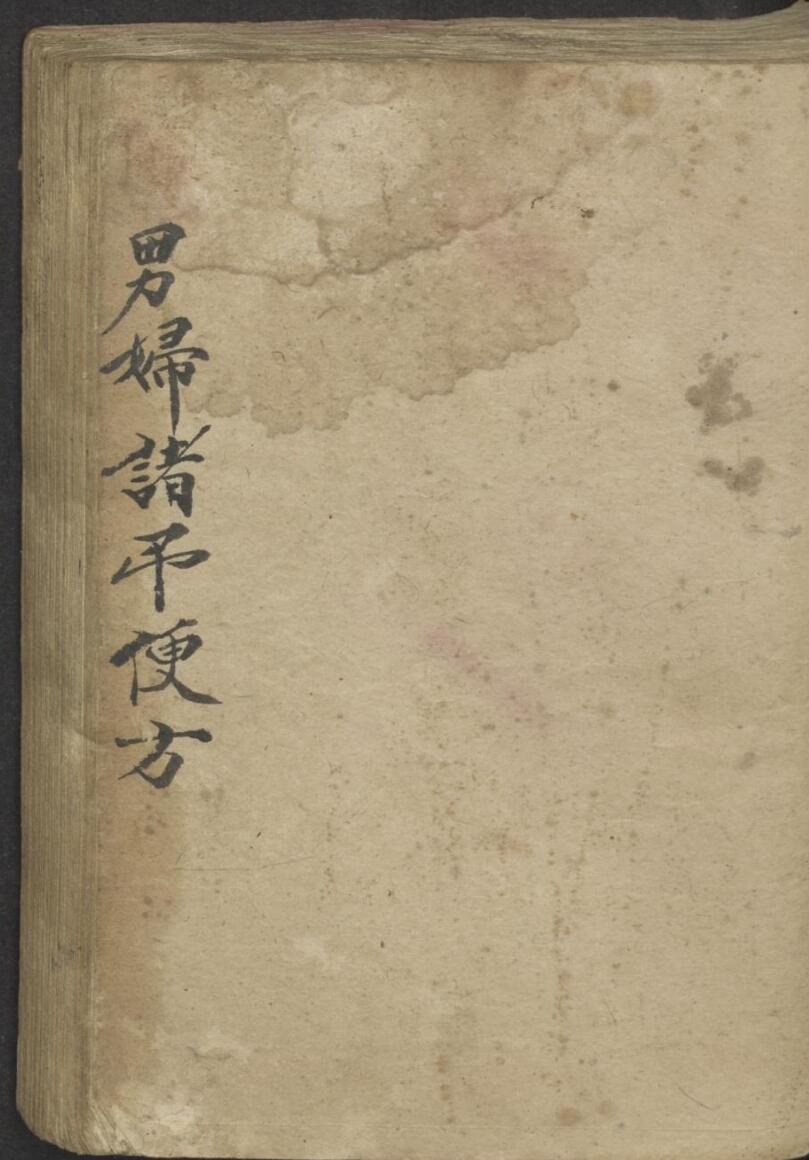 男婦諸吊便方